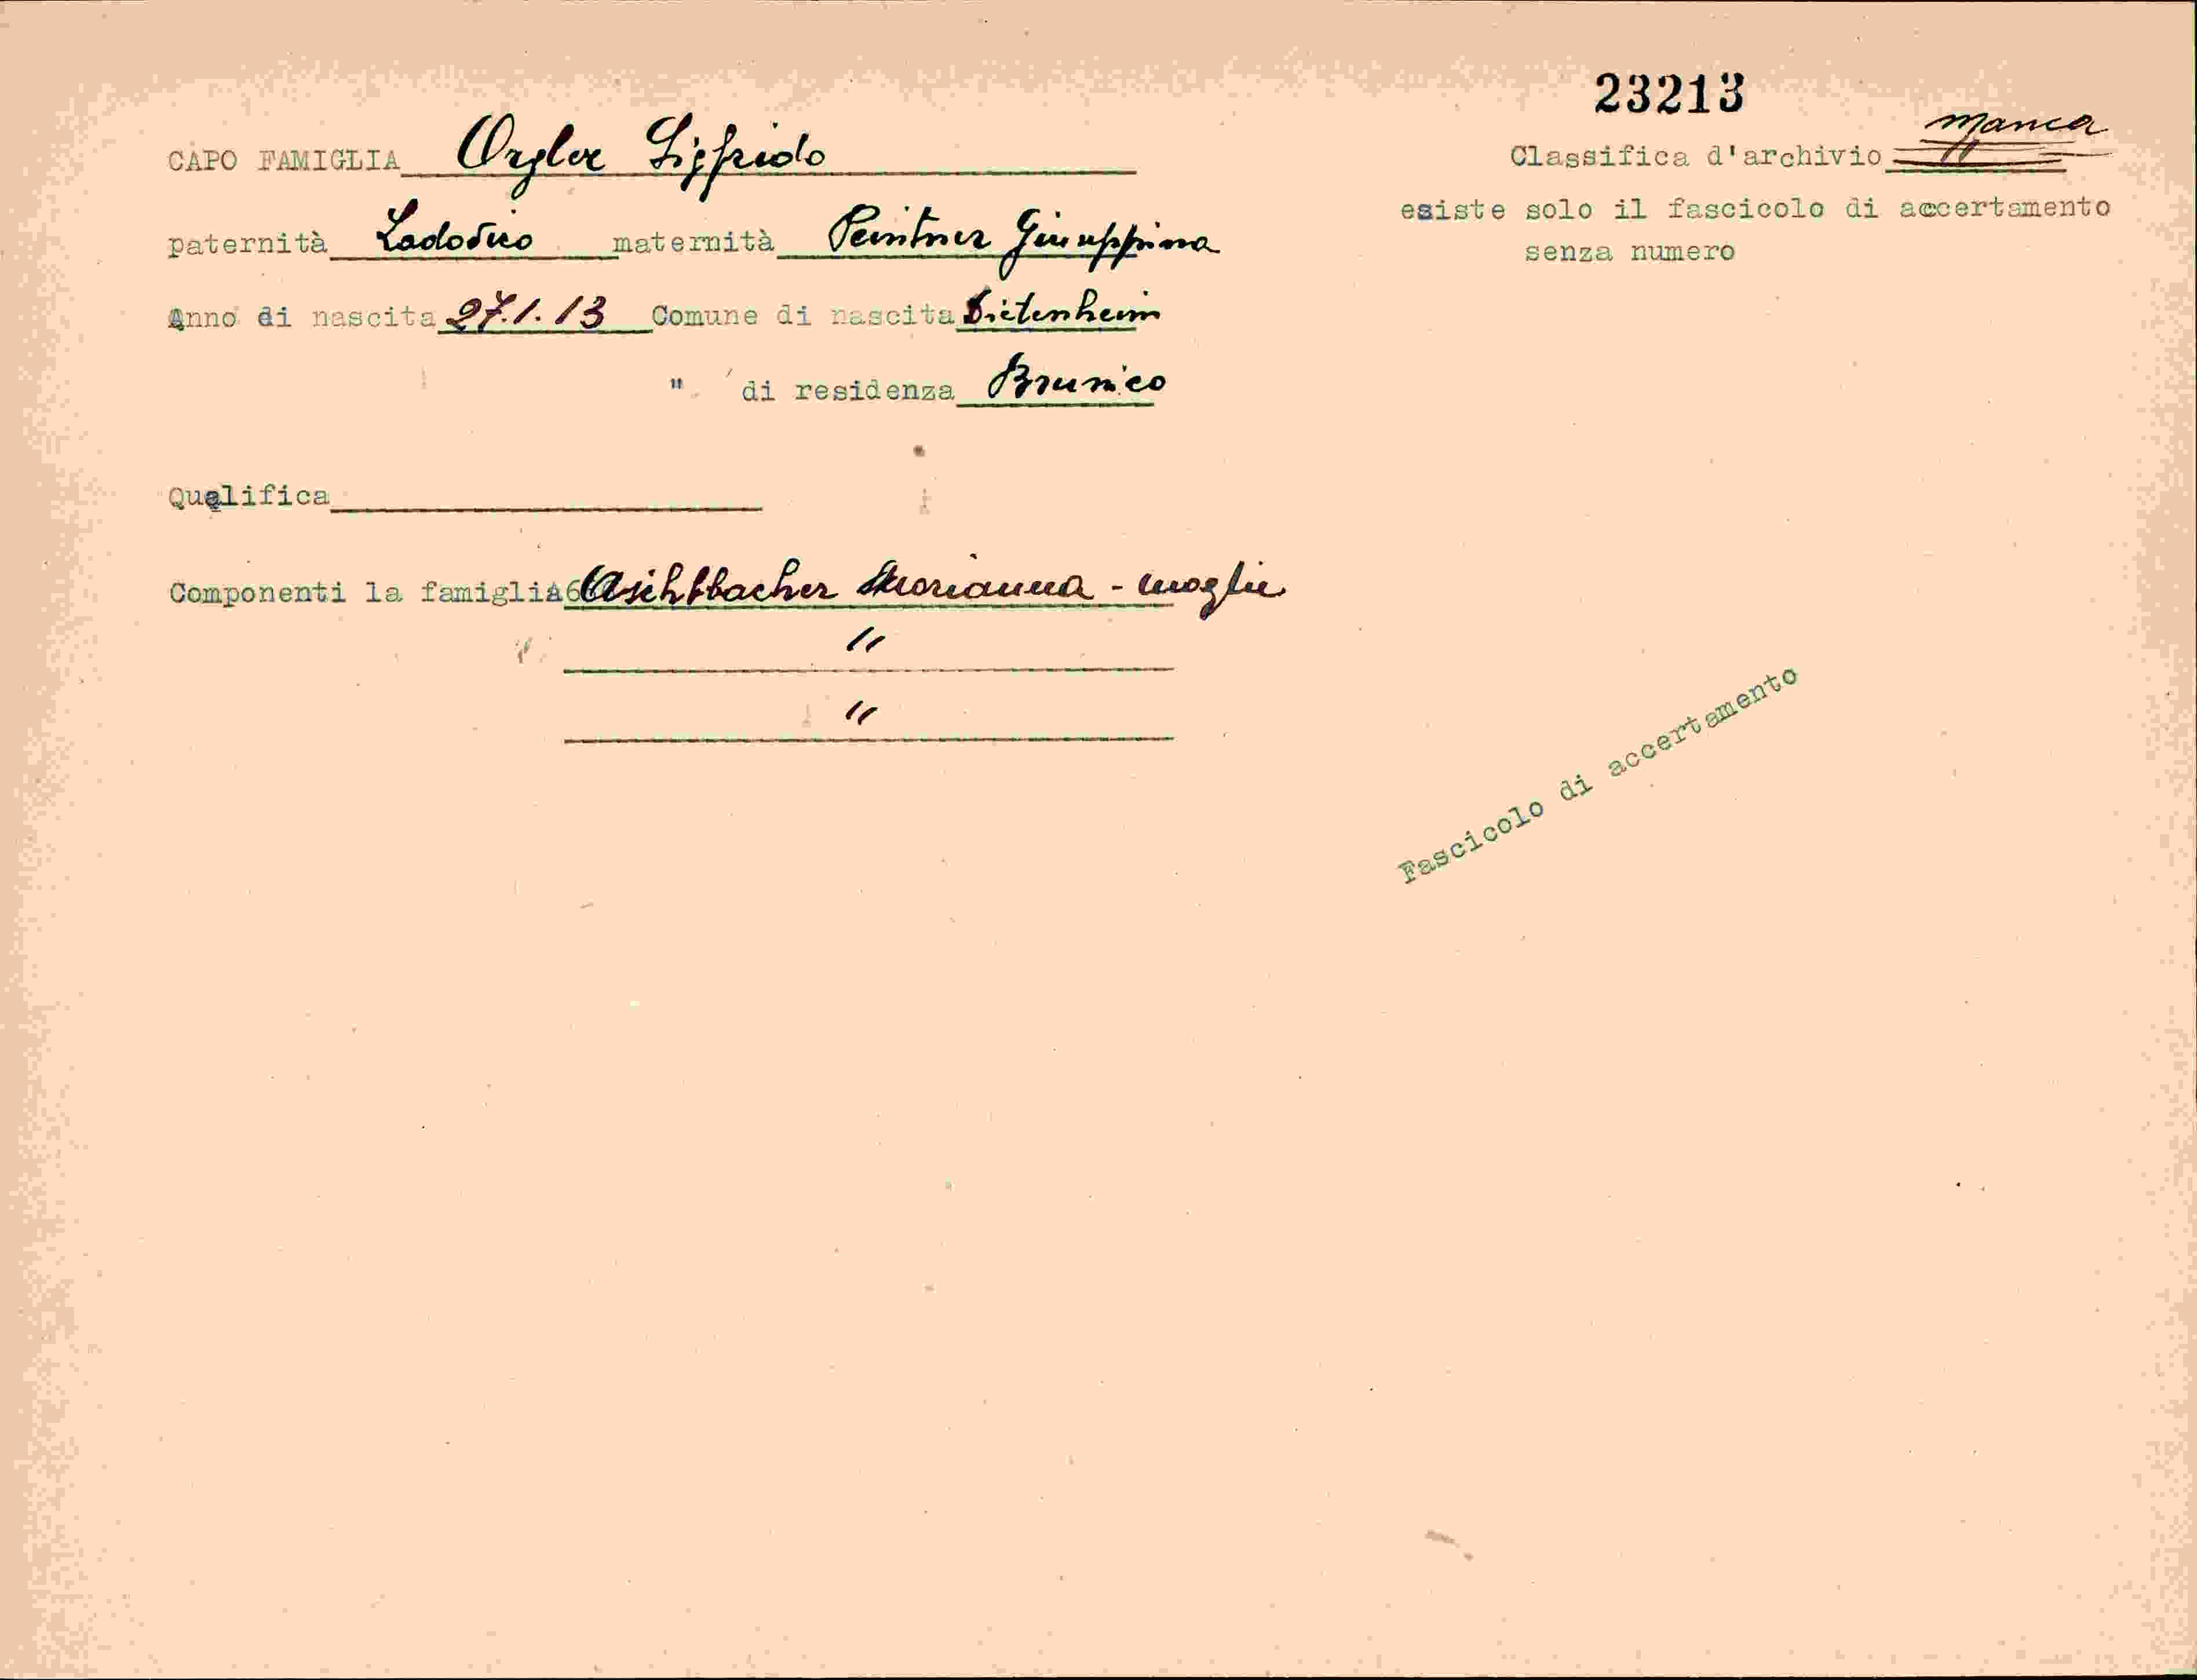 23213
CAPO FAMIGLIA Orgler Sigfrido
Classifica d'archivio manca
esiste solo il fascicolo di accertamento
senza numero
paternità Lodovico maternità Peintner Giuseppina
Anno di nascita 27.1.13 Comune di nascita Dietenheim
" di residenza Brunico
Qualifica
Componenti la famiglia Marianna - moglie
" "
"
Fascicolo di accertamento